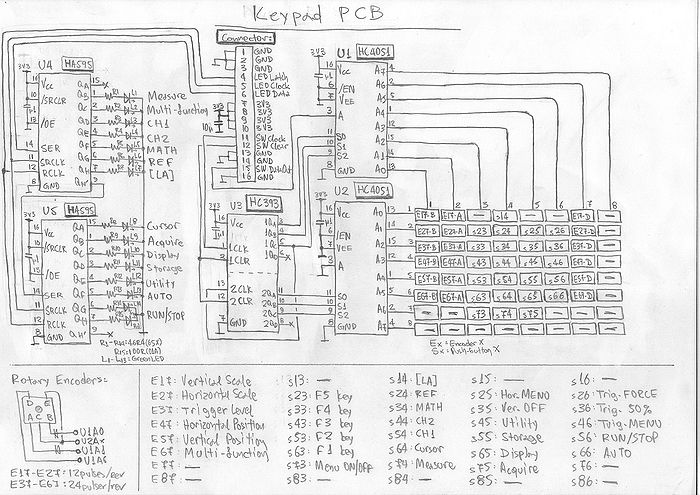 Keypad PCB
Connector:
1 GND
2 GND
3 GND
4 LED Latch
5 LED Clock
6 LED Data
7 3V3
8 3V3
9 3V3
10 3V3
11 SW Clock
12 SW Clear
13 GND
14 GND
15 SW DataOut
16 GND
U4 HA595
3V3
Vcc
/SRCLR
/OE
SER
SRCLK
RCLK
GND
QA
QB
QC
QD
QE
QF
QG
QH
QH'
Measure
Multi-function
CH1
CH2
MATH
REF
[LA]
U5 HA595
3V3
Vcc
/SRCLR
/OE
SER
SRCLK
RCLK
GND
QA
QB
QC
QD
QE
QF
QG
QH
QH'
Cursor
Acquire
Display
Storage
Utility
AUTO
RUN/STOP
U3 HC393
3V3
Vcc
1CLK
1CLR
2CLK
2CLR
GND
1QA
1QB
1QC
1QD
2QA
2QB
2QC
2QD
U1 HC4051
3V3
Vcc
/EN
VEE
A
S0
S1
S2
GND
A7
A6
A5
A4
A3
A2
A1
A0
U2 HC4051
3V3
Vcc
/EN
VEE
A
S0
S1
S2
GND
A0
A1
A2
A3
A4
A5
A6
A7
1 2 3 4 5 6 7 8
1 E1-B E1-A — S14 — — E2-B —
2 E2-B E2-A S23 S24 S25 S26 E2-D —
3 E3-B E3-A S33 S34 S35 S36 E3-D —
4 E4-B E4-A S43 S44 S45 S46 E4-D —
5 E5-B E5-A S53 S54 S55 S56 E5-D —
6 E6-B E6-A S63 S64 S65 S66 E6-D —
7 — — S73 S74 S75 — — —
8 — — — — — — — —
Ex = Encoder X
Sx = Push-button X
L1-L15 = Green LED
Rotary Encoders:
D E
A C B
U1A0
U2Ax
U1A1
U1A6
E1-E2: 12pulses/rev
E3-E6: 24pulser/rev
E1: Vertical Scale
E2: Horizontal Scale
E3: Trigger Level
E4: Horizontal Position
E5: Vertical Position
E6: Multi-function
E7: —
E8: —
S13: —
S23: F5 key
S33: F4 key
S43: F3 key
S53: F2 key
S63: F1 key
S73: Menu ON/OFF
S83: —
S14: [LA]
S24: REF
S34: MATH
S44: CH2
S54: CH1
S64: Cursor
S74: Measure
S84: —
S15: —
S25: Hor.MENU
S35: Ver.OFF
S45: Utility
S55: Storage
S65: Display
S75: Acquire
S85: —
S16: —
S26: Trig.FORCE
S36: Trig.50%
S46: Trig.MENU
S56: RUN/STOP
S66: AUTO
S76: —
S86: —